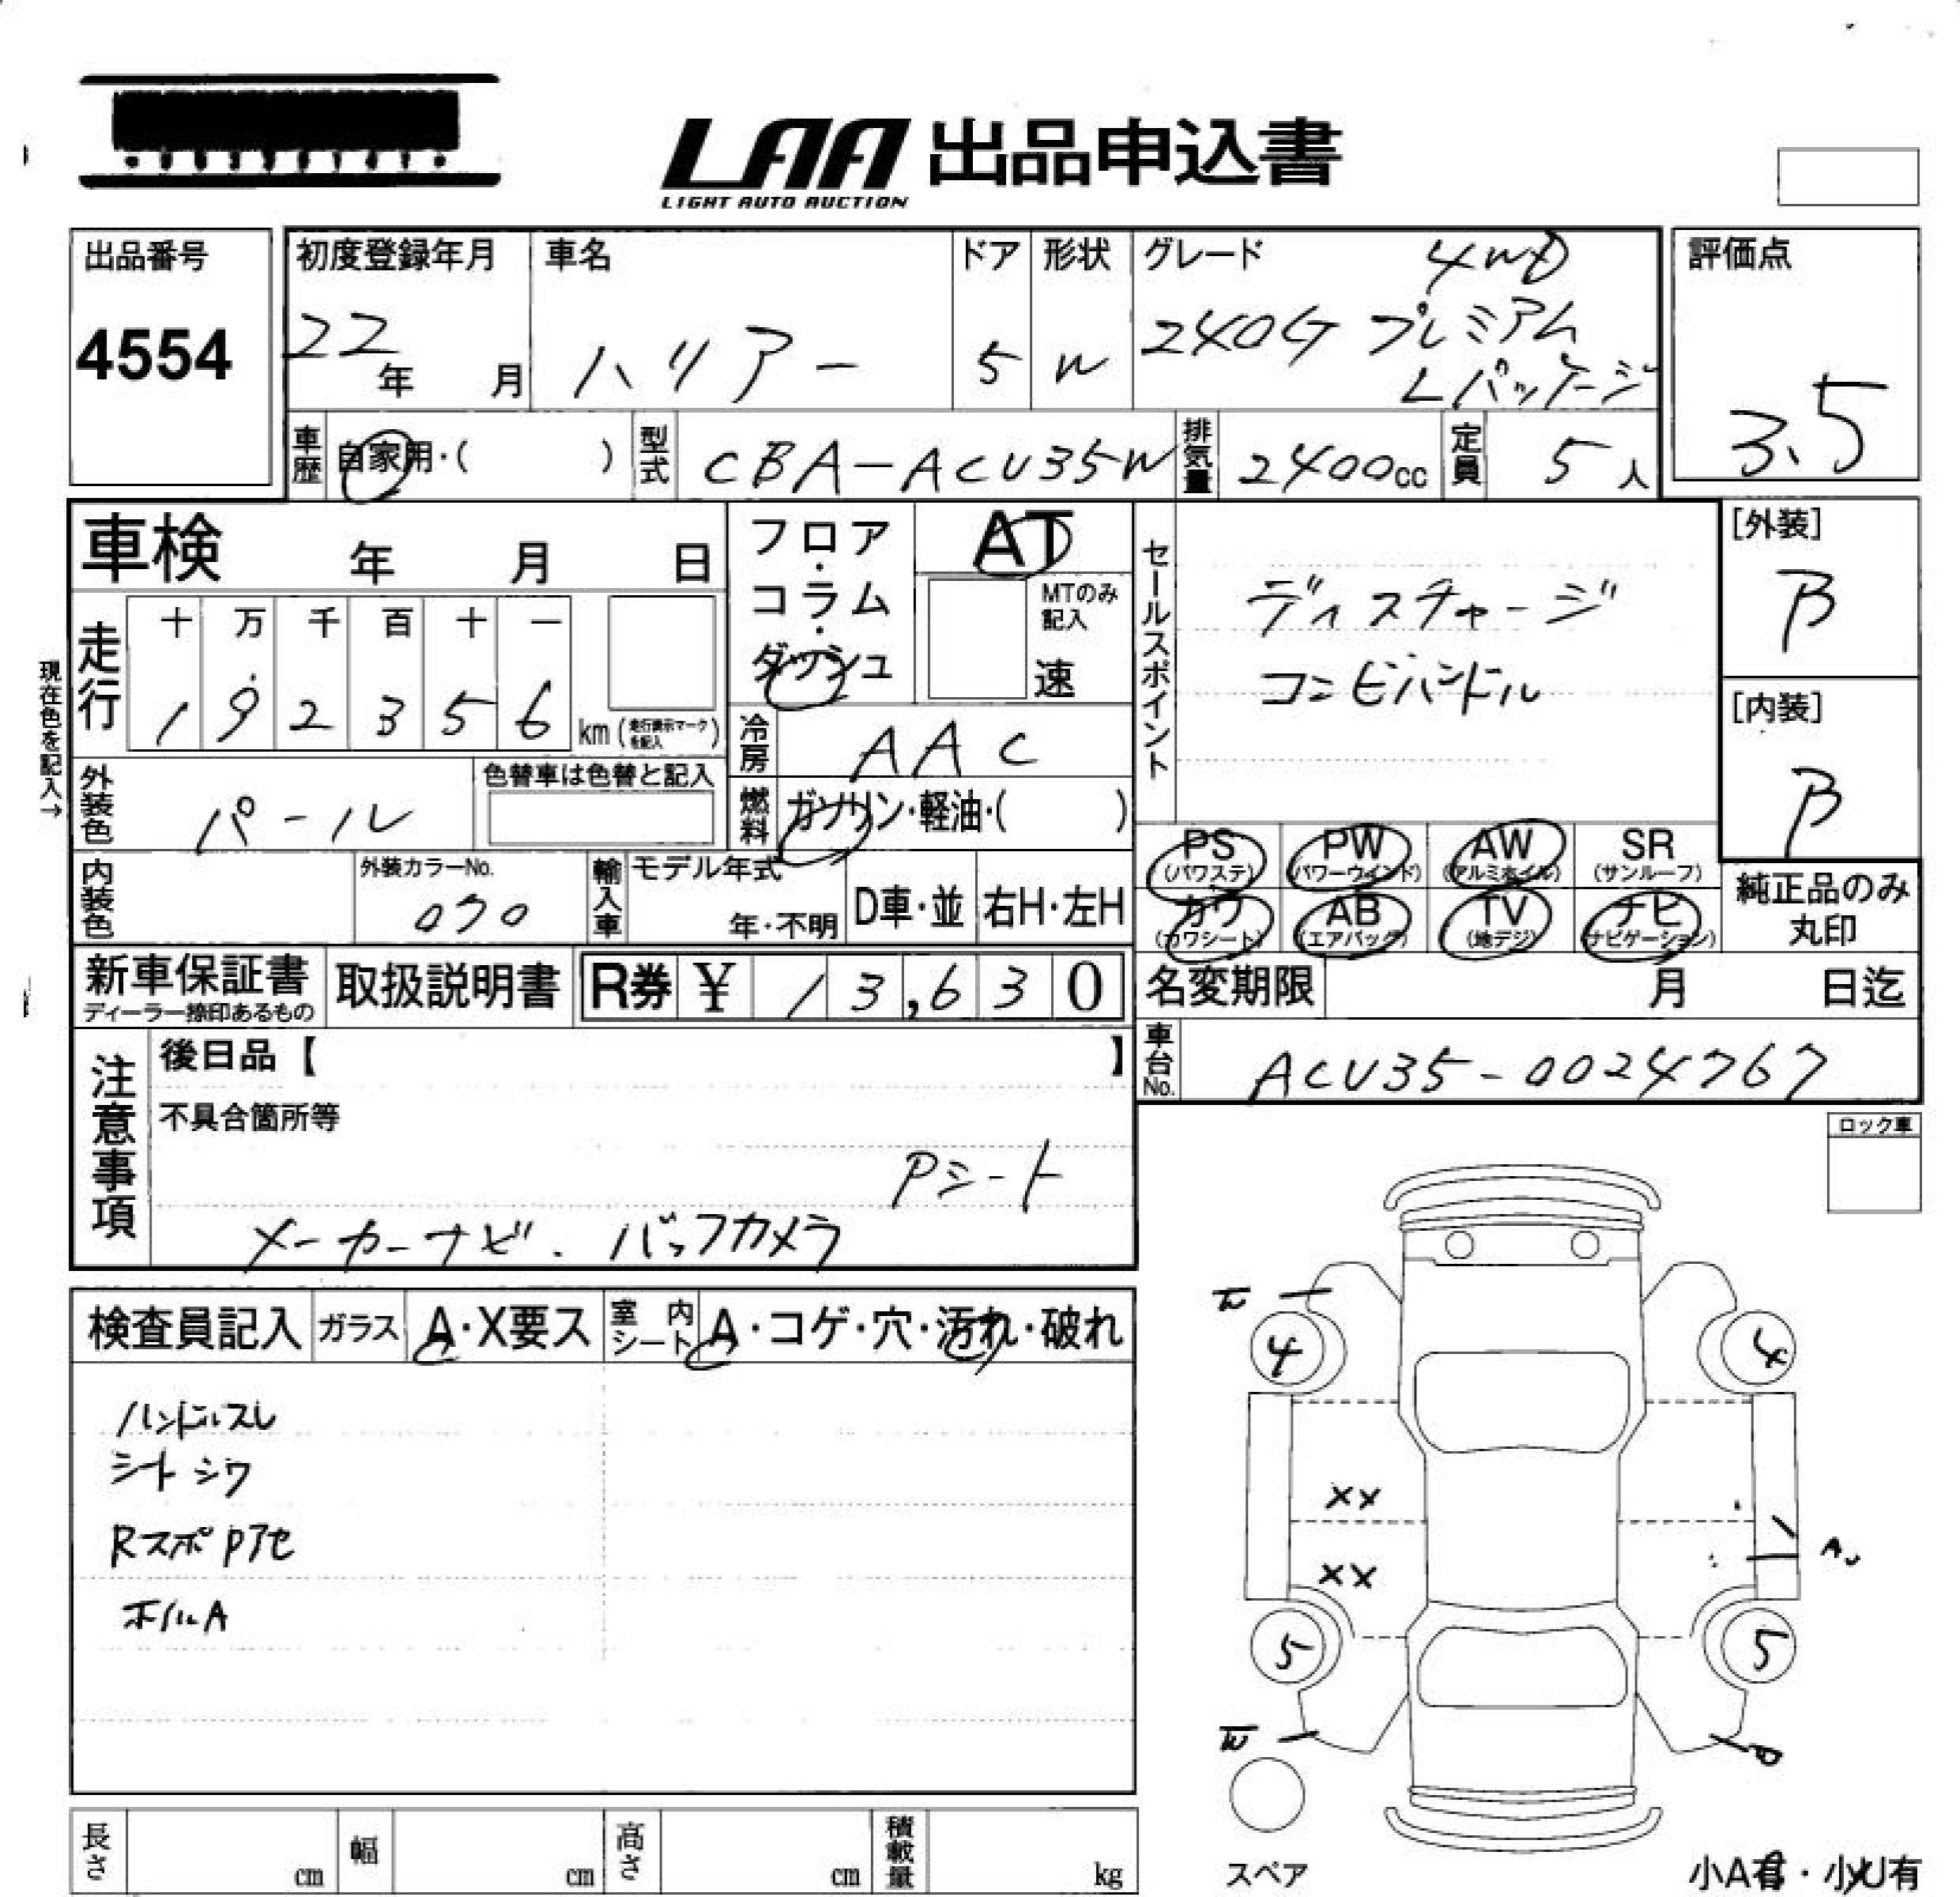 LAA 出品申込書
LIGHT AUTO AUCTION
出品番号
4554
初度登録年月
22年 月
車名
ハリアー
ドア
5
形状
W
グレード
4WD
240G プレミアム
Lパッケージ
評価点
3.5
車歴
自家用・( )
型式
CBA-ACU35W
排気量
2400cc
定員
5人
車検 年 月 日
フロア・コラム・ダッシュ
AT
MTのみ記入
速
セールスポイント
ディスチャージ
コンビハンドル
[外装]
B
[内装]
B
現在色を記入→
走行
十 万 千 百 十 一
1 9 2 3 5 6 km (走行表示マークを記入)
冷房
AAC
外装色
パール
色替車は色替と記入
燃料
ガソリン・軽油・( )
PS (パワステ)
PW (パワーウインド)
AW (アルミホイル)
SR (サンルーフ)
カワ (カワシート)
AB (エアバッグ)
TV (地デジ)
ナビ (ナビゲーション)
純正品のみ丸印
内装色
外装カラーNo.
070
輸入車
モデル年式
年・不明
D車・並
右H・左H
新車保証書
ディーラー捺印あるもの
取扱説明書
R券 ¥ 13,630
名変期限 月 日迄
車台No.
ACU35-0024767
注意事項
後日品【 】
不具合箇所等
Pシート
メーカーナビ. バックカメラ
ロック車
検査員記入
ガラス
A・X要ス
室内シート
A・コゲ・穴・汚れ・破れ
ハンドルスレ
シートシワ
Rスポ Pアセ
ホイルA
4
4
XX
XX
5
5
W
スペア
長さ cm
幅 cm
高さ cm
積載量 kg
小A有・小U有